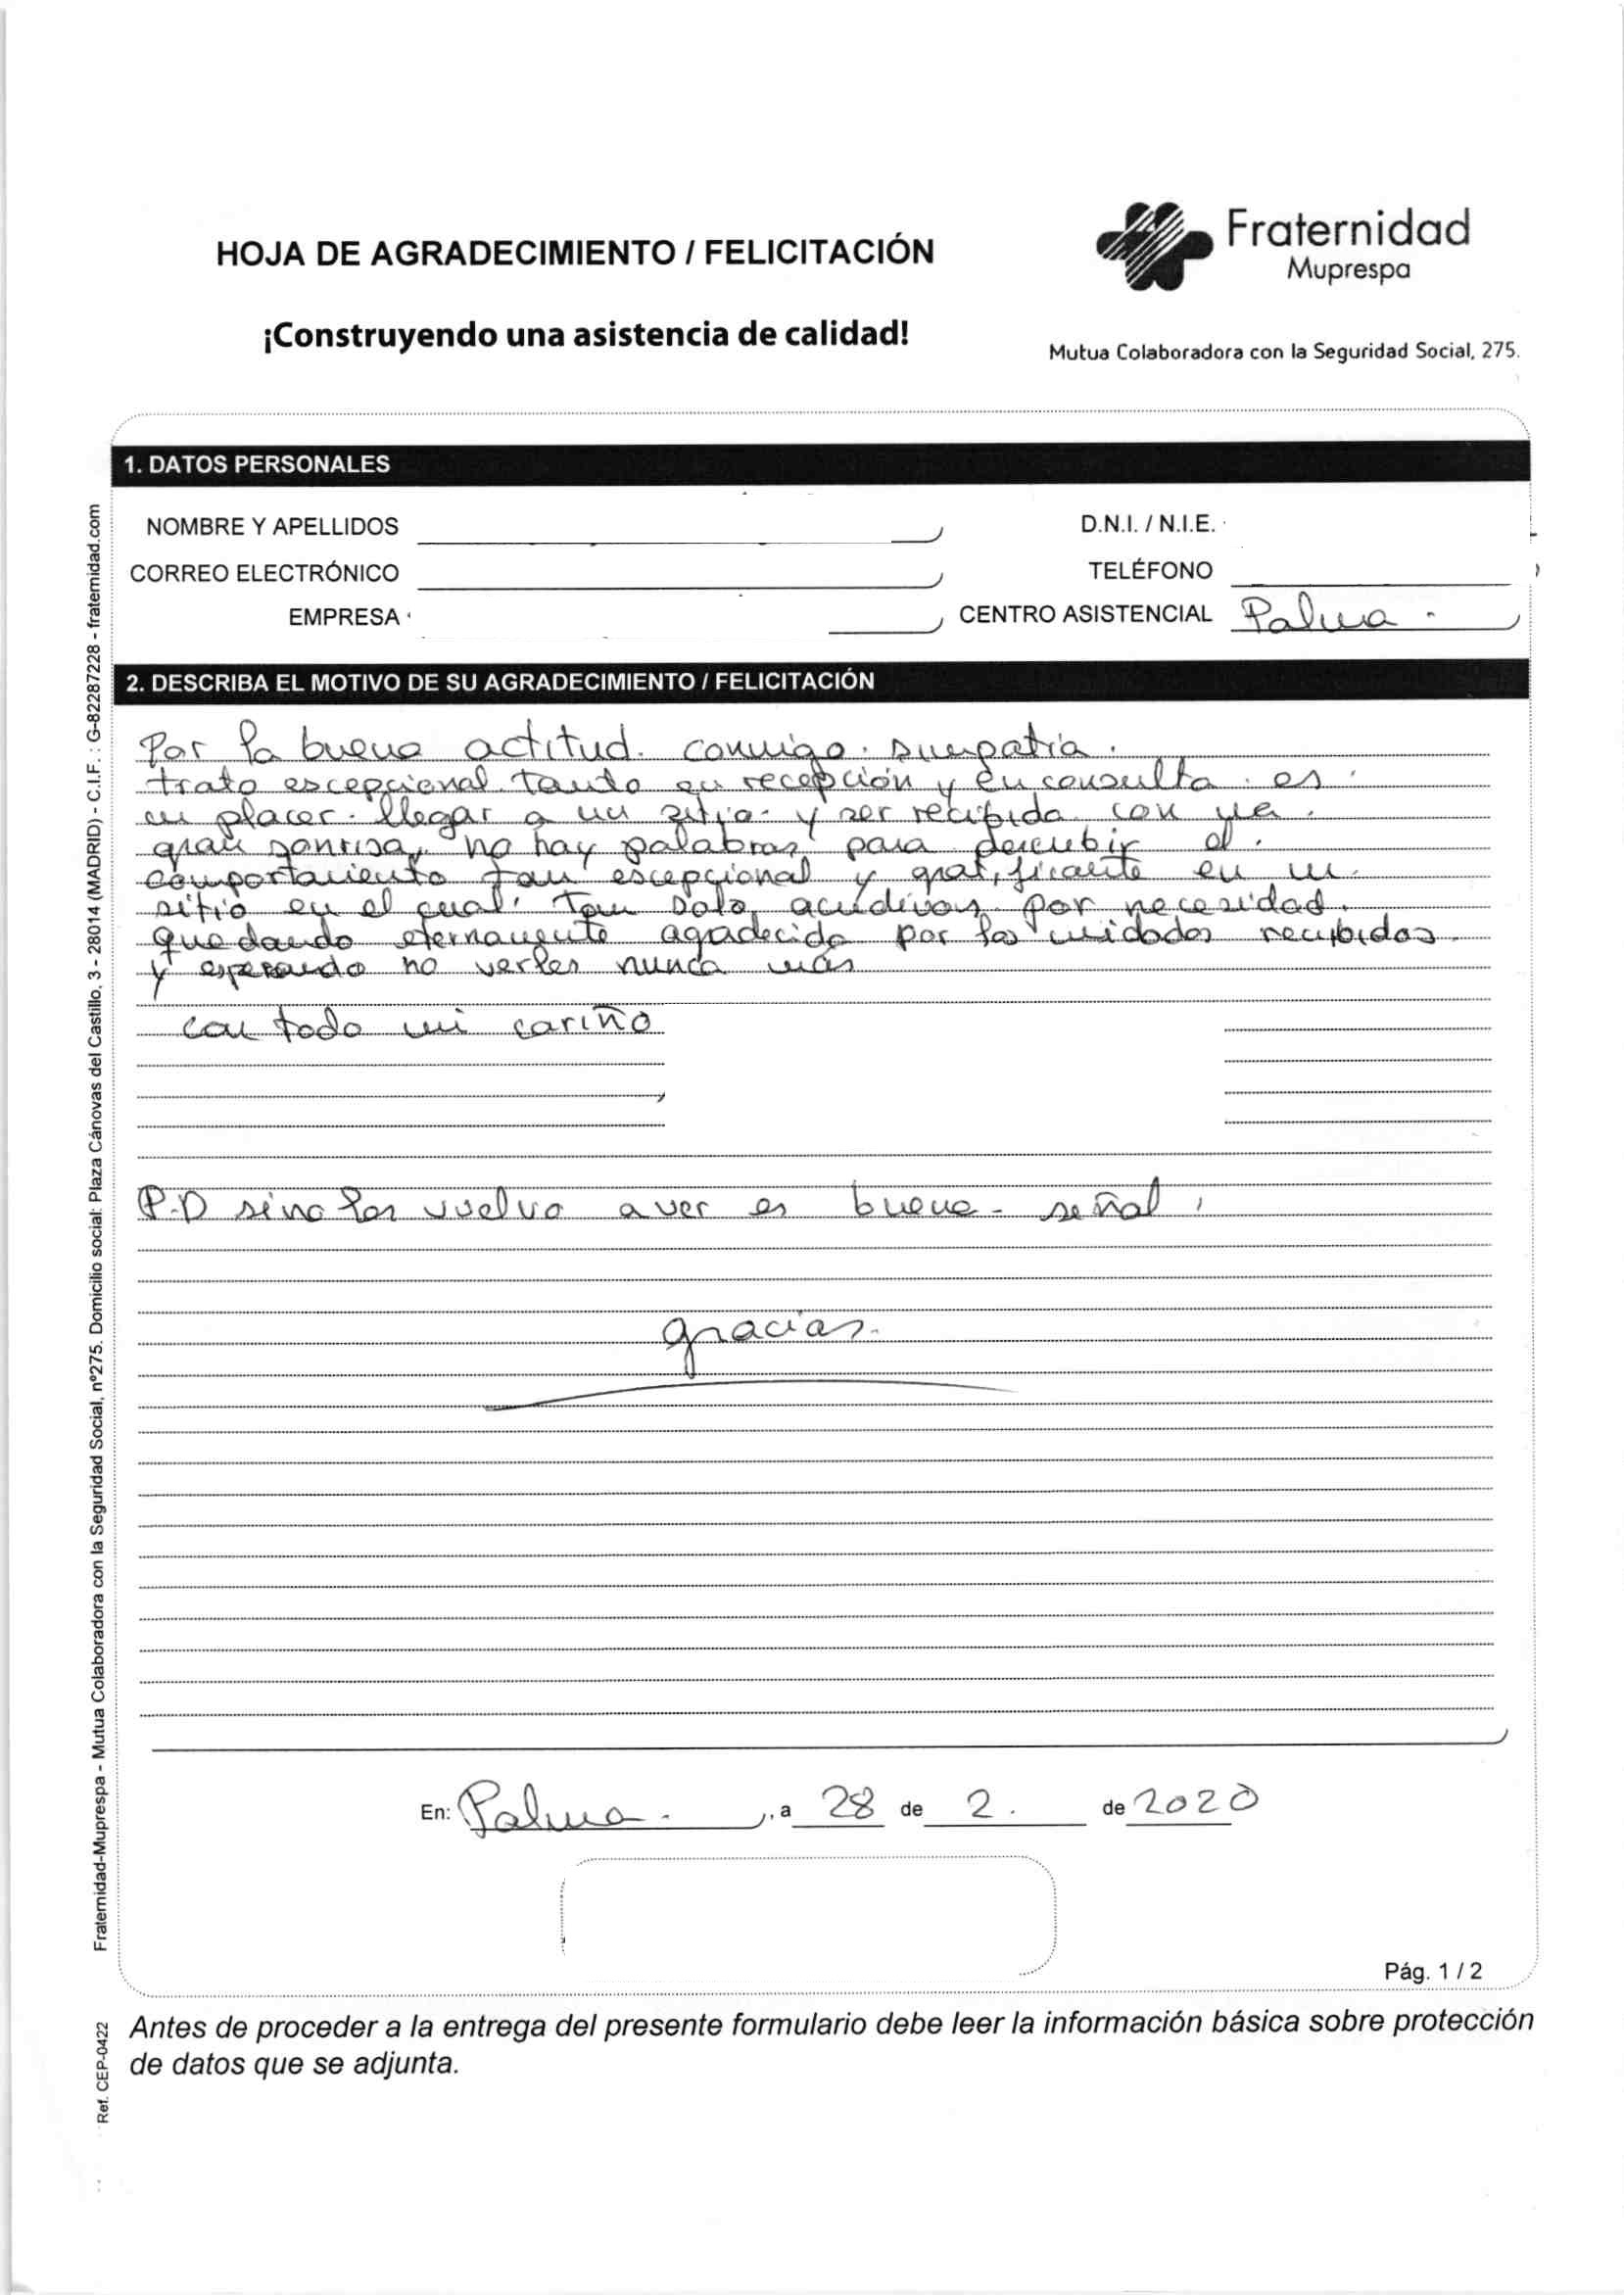 HOJA DE AGRADECIMIENTO / FELICITACIÓN
¡Construyendo una asistencia de calidad!
Fraternidad
Muprespa
Mutua Colaboradora con la Seguridad Social, 275.
1. DATOS PERSONALES
NOMBRE Y APELLIDOS
D.N.I. / N.I.E.
CORREO ELECTRÓNICO
TELÉFONO
EMPRESA
CENTRO ASISTENCIAL Palma.
2. DESCRIBA EL MOTIVO DE SU AGRADECIMIENTO / FELICITACIÓN
Por la buena actitud. conmigo. simpatia.
trato escepcional. tanto en recepción y en consulta. es
un placer. llegar a un sitio. y ser recibida con una
gran sonrisa, no hay palabras para describir el.
comportamiento tan escepcional y gratificante en un
sitio en el cual tan solo acudimos por necesidad.
quedando eternamente agradecida por los cuidados recibidos.
y esperando no verles nunca más
con todo mi cariño
P.D sino los vuelvo a ver es buena señal.
gracias.
En: Palma. , a 28 de 2. de 2020
Pág. 1 / 2
Antes de proceder a la entrega del presente formulario debe leer la información básica sobre protección
de datos que se adjunta.
Fraternidad-Muprespa - Mutua Colaboradora con la Seguridad Social, nº275. Domicilio social: Plaza Cánovas del Castillo, 3 - 28014 (MADRID) - C.I.F. : G-82287228 - fraternidad.com
Ref. CEP-0422